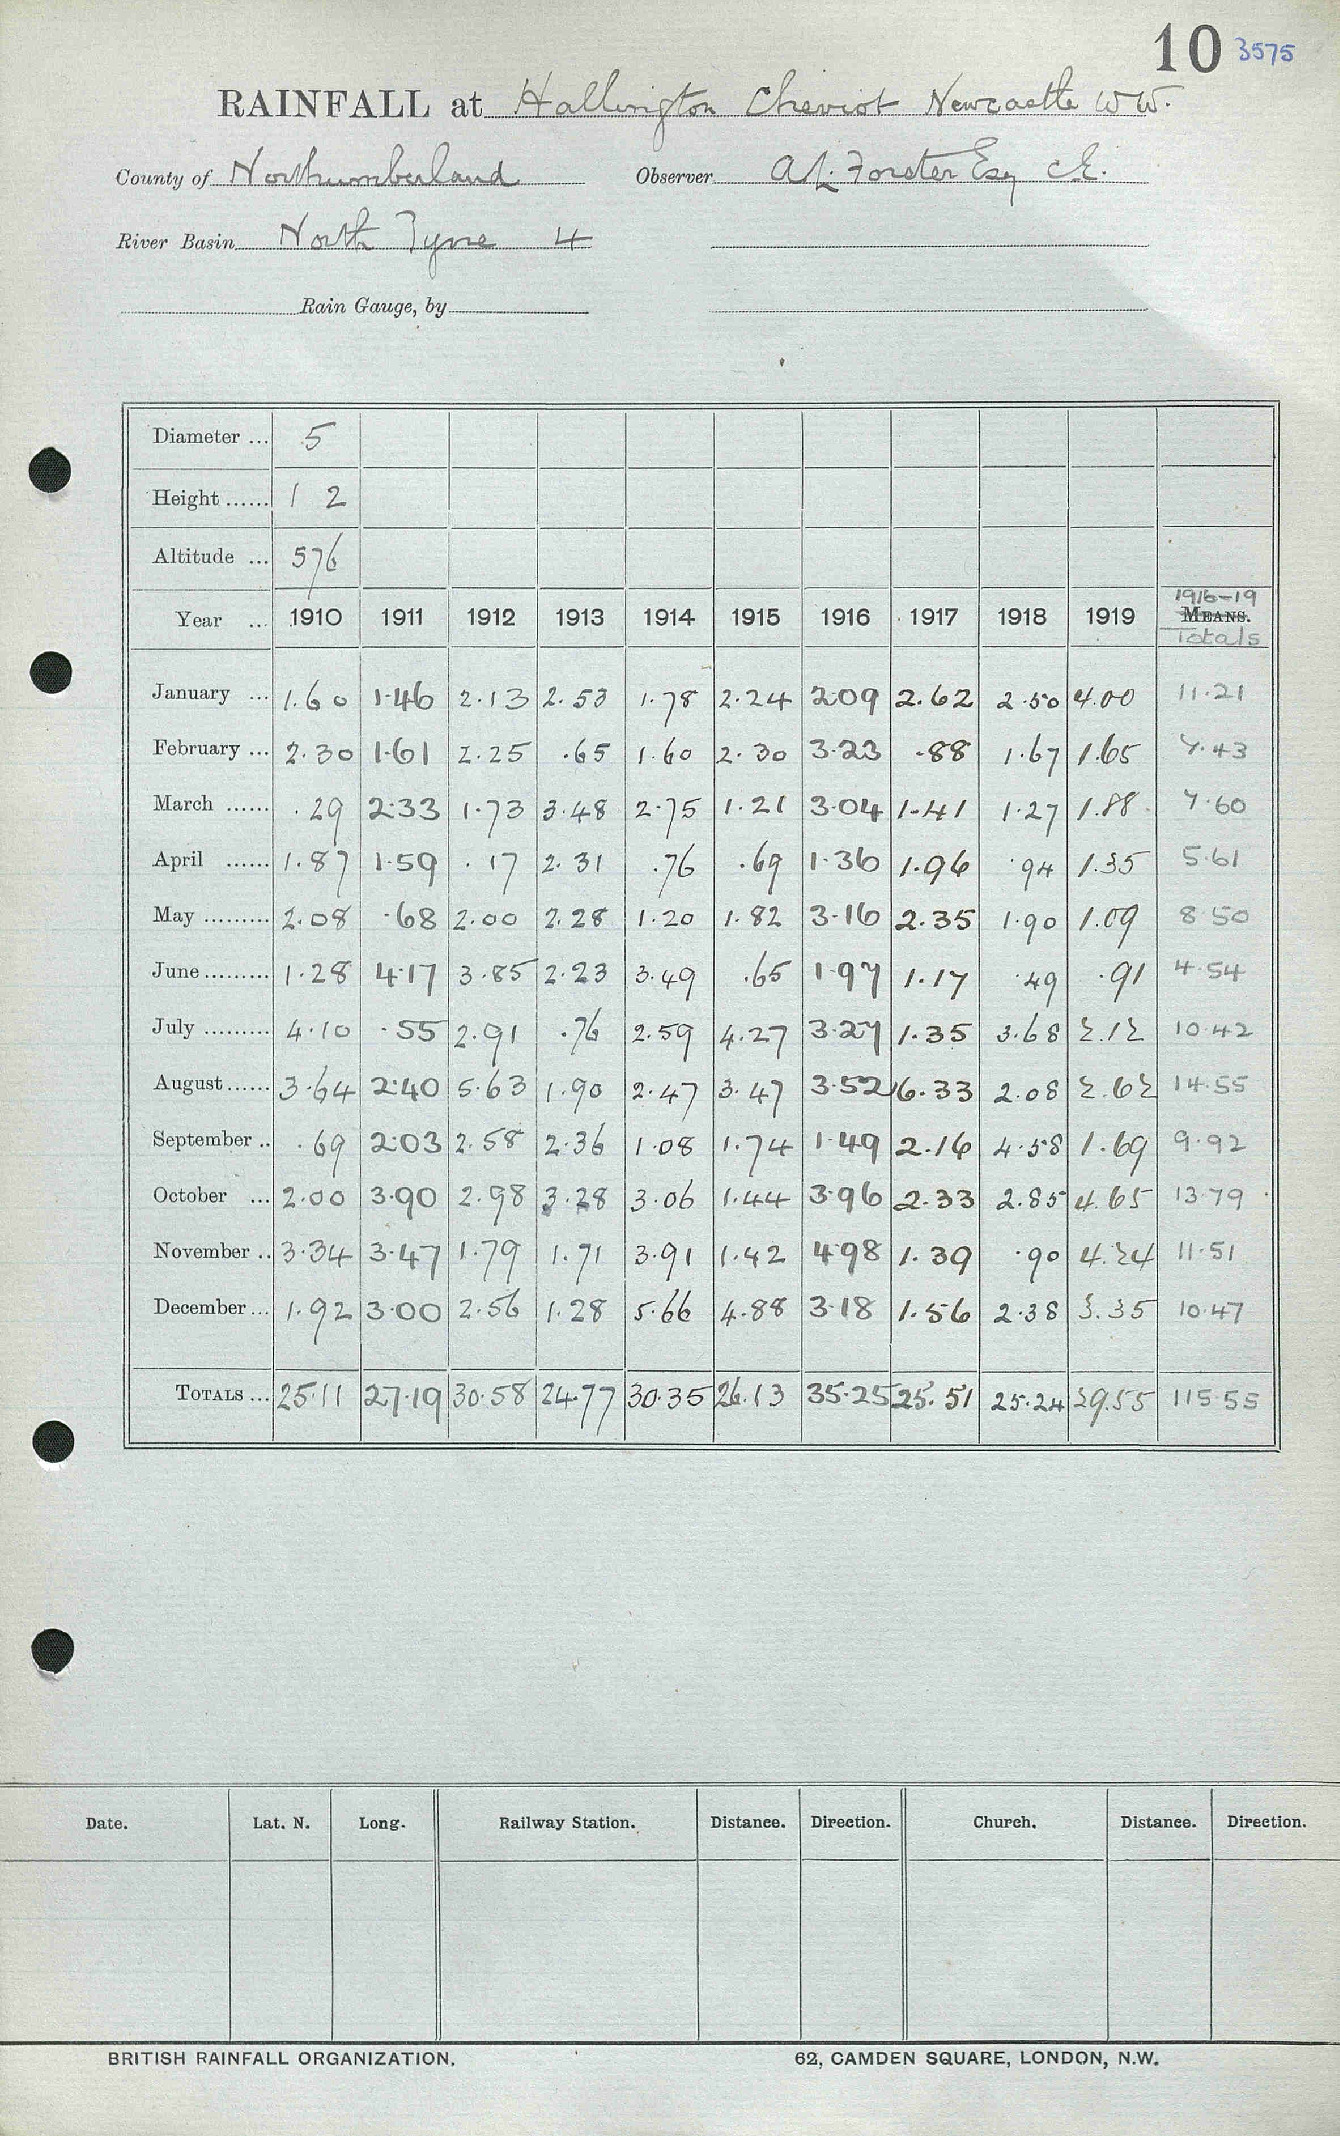 10 3575
RAINFALL at Hallington Cheviot Newcastle W.W.
County of Northumberland Observer A.L. Forster Esq C.E.
River Basin North Tyne 4
Rain Gauge, by
Diameter ... 5
Height ...... 1 2
Altitude ... 576
1916-19
Year ... 1910 1911 1912 1913 1914 1915 1916 1917 1918 1919 MEANS.
Totals
January ... 1.60 1.46 2.13 2.53 1.78 2.24 2.09 2.62 2.50 4.00 11.21
February ... 2.30 1.61 2.25 .65 1.60 2.30 3.23 .88 1.67 1.65 7.43
March ...... .29 2.33 1.73 3.48 2.75 1.21 3.04 1.41 1.27 1.88 7.60
April ...... 1.87 1.59 .17 2.31 .76 .69 1.36 1.96 .94 1.35 5.61
May ......... 2.08 .68 2.00 2.28 1.20 1.82 3.16 2.35 1.90 1.09 8.50
June ......... 1.28 4.17 3.85 2.23 3.49 .65 1.97 1.17 .49 .91 4.54
July ......... 4.10 .55 2.91 .76 2.59 4.27 3.27 1.35 3.68 2.12 10.42
August ...... 3.64 2.40 5.63 1.90 2.47 3.47 3.52 6.33 2.08 2.62 14.55
September .. .69 2.03 2.58 2.36 1.08 1.74 1.49 2.16 4.58 1.69 9.92
October ... 2.00 3.90 2.98 3.28 3.06 1.44 3.96 2.33 2.85 4.65 13.79
November .. 3.34 3.47 1.79 1.71 3.91 1.42 4.98 1.39 .90 4.24 11.51
December ... 1.92 3.00 2.56 1.28 5.66 4.88 3.18 1.56 2.38 3.35 10.47
TOTALS ... 25.11 27.19 30.58 24.77 30.35 26.13 35.25 25.51 25.24 29.55 115.55
Date. Lat. N. Long. Railway Station. Distance. Direction. Church. Distance. Direction.
BRITISH RAINFALL ORGANIZATION. 62, CAMDEN SQUARE, LONDON, N.W.